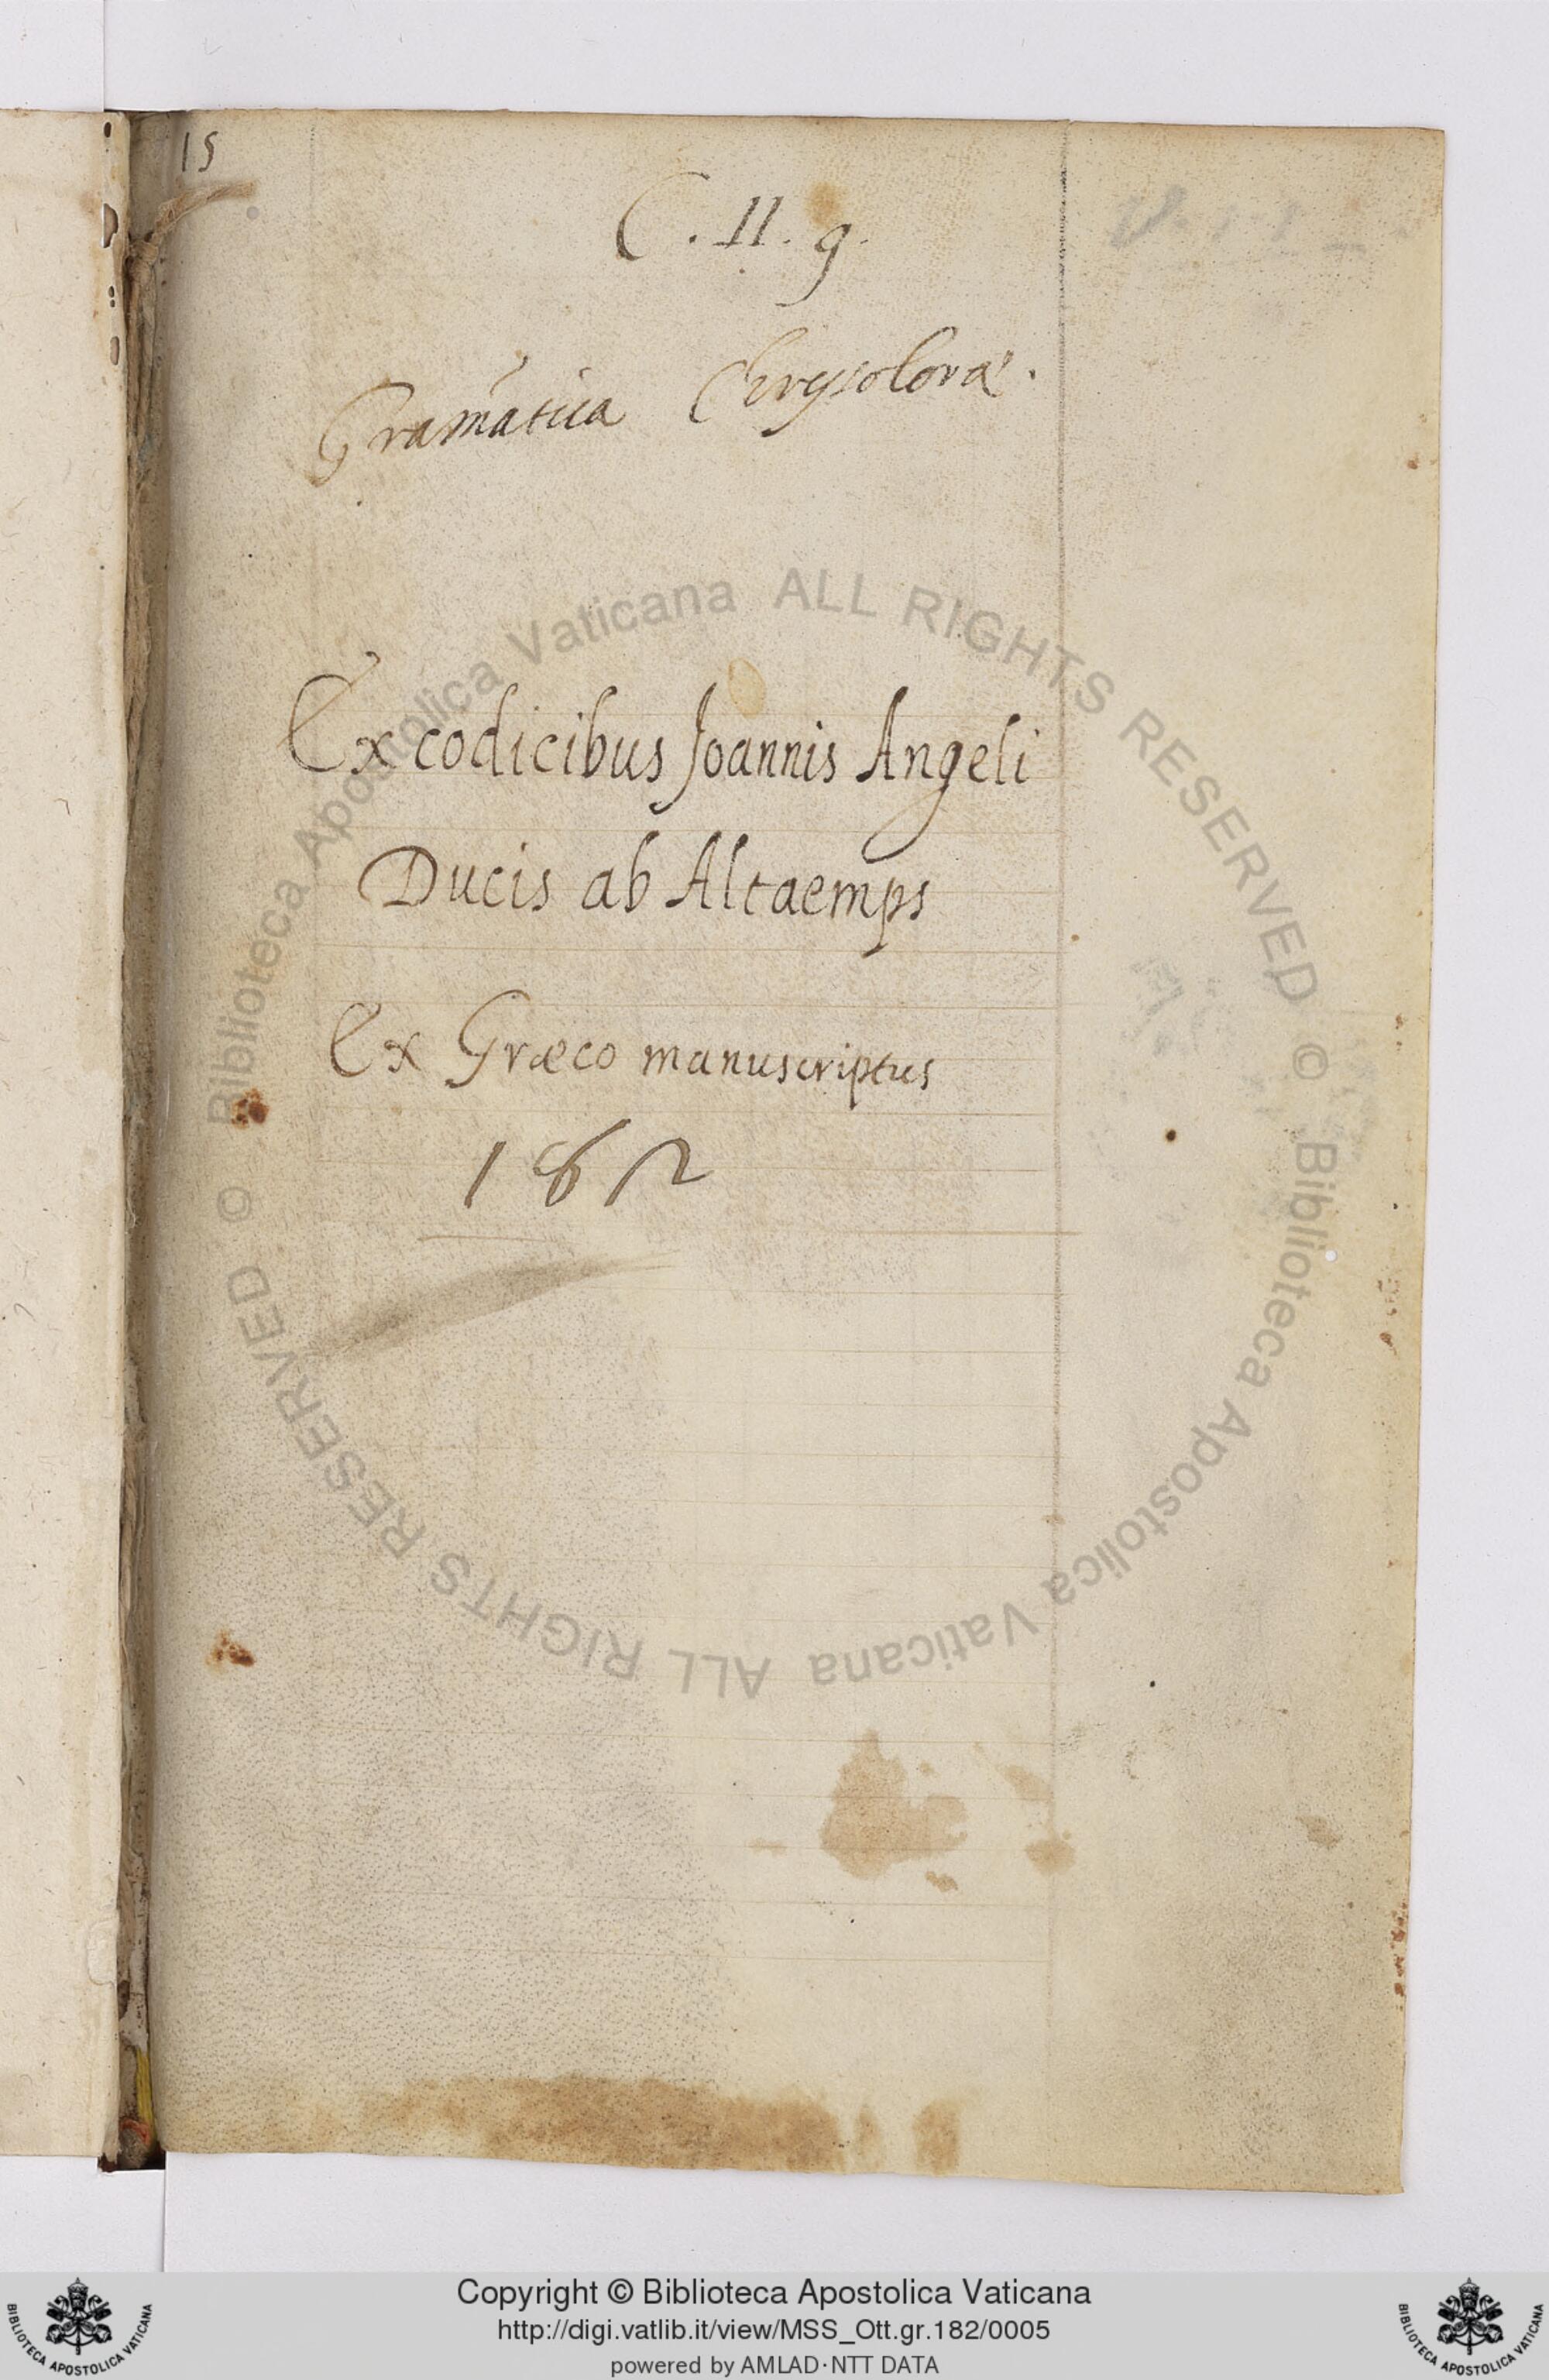 15
C. 11. 9.
Gram̄atica Chrysoloræ.
Ex codicibus Joannis Angeli
Ducis ab Altaemps
Ex Græco manuscriptus
182
© Biblioteca Apostolica Vaticana ALL RIGHTS RESERVED © Biblioteca Apostolica Vaticana ALL RIGHTS RESERVED
Copyright © Biblioteca Apostolica Vaticana
http://digi.vatlib.it/view/MSS_Ott.gr.182/0005
powered by AMLAD·NTT DATA
BIBLIOTECA APOSTOLICA VATICANA
BIBLIOTECA APOSTOLICA VATICANA